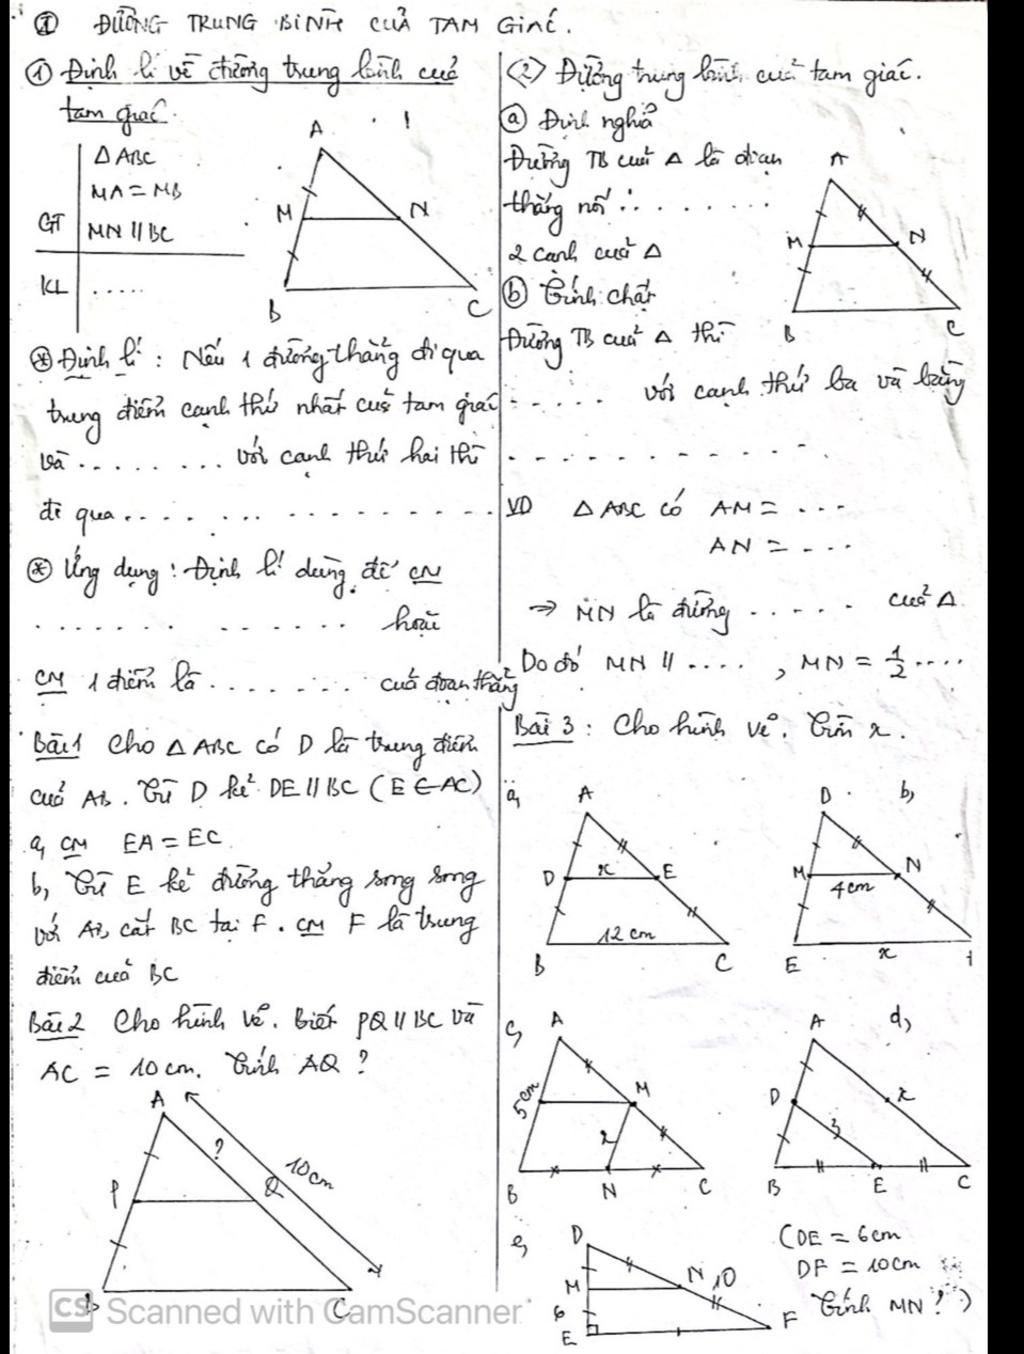 ① ĐƯỜNG TRUNG BÌNH CỦA TAM GIÁC.
① Định lí về đường trung bình của
tam giác.
GT
△ ABC
MA = MB
MN // BC
KL
.....
A
M
N
B
C
⊛ Định lí : Nếu 1 đường thẳng đi qua
trung điểm cạnh thứ nhất của tam giác
và ........ với cạnh thứ hai thì
đi qua ....................
⊛ Ứng dụng : Định lí dùng để CM
............. hoặc
CM 1 điểm là ........ của đoạn thẳng
Bài 1 Cho △ ABC có D là trung điểm
của AB. Từ D kẻ DE // BC (E ∈ AC)
a, CM EA = EC
b, Từ E kẻ đường thẳng song song
với AB, cắt BC tại F. CM F là trung
điểm của BC
Bài 2 Cho hình vẽ. Biết PQ // BC và
AC = 10 cm. Tính AQ ?
A
?
10 cm
P
Q
B
C
② Đường trung bình của tam giác.
ⓐ Định nghĩa
Đường TB của △ là đoạn
thẳng nối .........
2 cạnh của △
ⓑ Tính chất
Đường TB của △ thì
...... với cạnh thứ ba và bằng
.............
A
M
N
B
C
VD △ ABC có AM = ...
AN = ....
→ MN là đường ..... của △
Do đó MN // .... , MN = 1/2 ....
Bài 3 : Cho hình vẽ. Tìm x.
a,
A
D
x
E
12 cm
B
C
b,
D
M
N
4cm
E
x
c,
A
5cm
M
x
B
N
C
d,
A
D
x
3
B
E
C
e,
D
M
N
10
6
E
F
(DE = 6cm
DF = 10cm
Tính MN ?)
CS Scanned with CamScanner